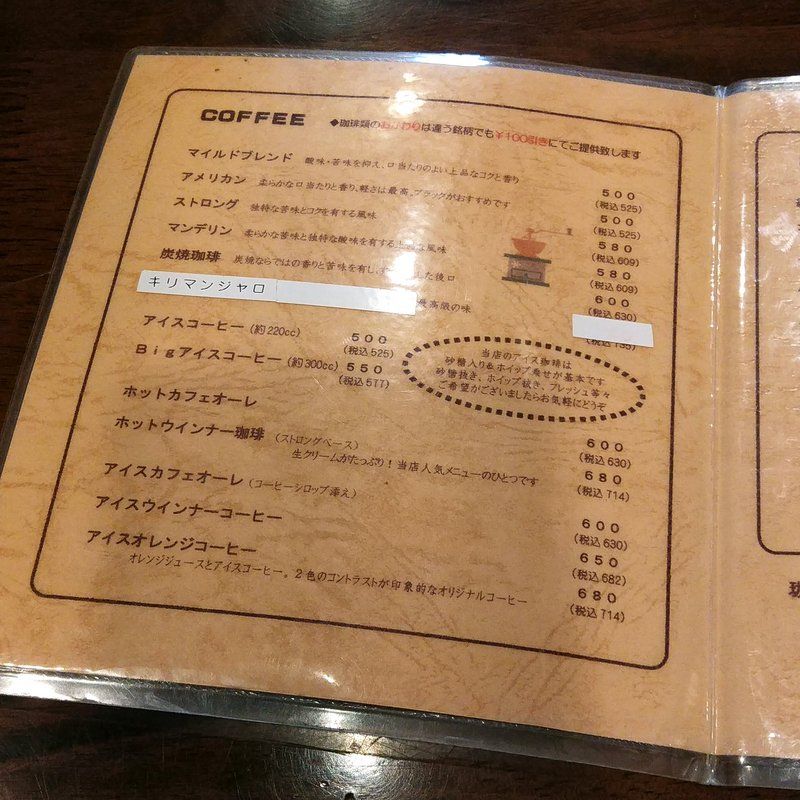 COFFEE ◆珈琲類のおかわりは違う銘柄でも¥100引きにてご提供致します
マイルドブレンド 酸味・苦味を抑え、口当たりのよい上品なコクと香り 500
(税込525)
アメリカン 柔らかな口当たりと香り、軽さは最高。ブラックがおすすめです 500
(税込525)
ストロング 独特な苦味とコクを有する風味 580
(税込609)
マンデリン 柔らかな苦味と独特な酸味を有する上品な風味 580
(税込609)
炭焼珈琲 炭焼ならではの香りと苦味を有し、す した後口 600
(税込630)
キリマンジャロ 最高級の味
(税込735)
アイスコーヒー (約220cc) 500
(税込525)
Bigアイスコーヒー (約300cc) 550
(税込577)
当店のアイス珈琲は
砂糖入り&ホイップ乗せが基本です
砂糖抜き、ホイップ抜き、フレッシュ等々
ご希望がございましたらお気軽にどうぞ
ホットカフェオーレ 600
(税込630)
ホットウインナー珈琲 (ストロングベース) 680
生クリームがたっぷり!当店人気メニューのひとつです (税込714)
アイスカフェオーレ (コーヒーシロップ添え) 600
(税込630)
アイスウインナーコーヒー 650
(税込682)
アイスオレンジコーヒー 680
オレンジジュースとアイスコーヒー。2色のコントラストが印象的なオリジナルコーヒー (税込714)